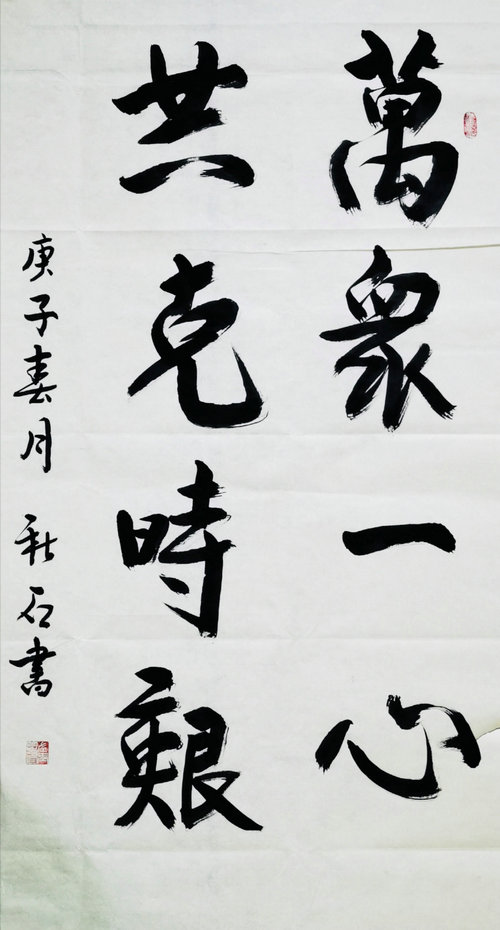 萬眾一心
共克時艱
庚子春月 秋石書